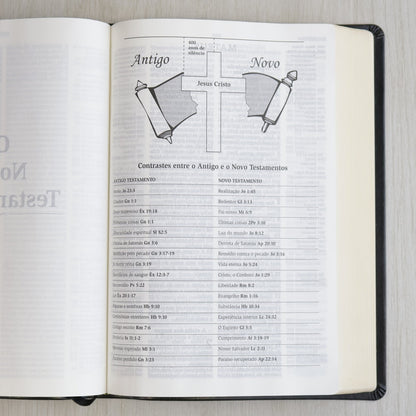 400
anos de
silêncio
Antigo
Novo
Jesus Cristo
Contrastes entre o Antigo e o Novo Testamentos
ANTIGO TESTAMENTO NOVO TESTAMENTO
Jo 23:3 Realização Jo 1:45
Criador Gn 1:1 Redentor Gl 3:13
Deus Êx 19:18 Pai nosso Mt 6:9
Primeiras coisas Gn 1:1 Últimas coisas 2Pe 3:10
Obscuridade espiritual Sl 82:5 Luz do mundo Jo 8:12
Vitória de Satanás Gn 3:6 Derrota de Satanás Ap 20:10
Maldição pelo pecado Gn 3:17-19 Remédio contra o pecado Jo 3:16
A morte reina Gn 3:19 Vida eterna Jo 5:24
Sacrifícios de sangue Êx 12:3-7 Cristo, o Cordeiro Jo 1:29
Pv 5:22 Liberdade Rm 8:2
Lei Êx 20:1-17 Evangelho Rm 1:16
Figuras e sombras Hb 9:10 Substância Hb 10:34
Cerimônias exteriores Hb 9:10 Experiência interior Lc 24:32
Código escrito Rm 7:6 O Espírito Gl 3:3
Profecia Is 11:1-2 Cumprimento At 3:18-19
Messias esperado Ml 3:1 Nosso Salvador Lc 2:11
Paraíso perdido Gn 3:23 Paraíso recuperado Ap 22:14